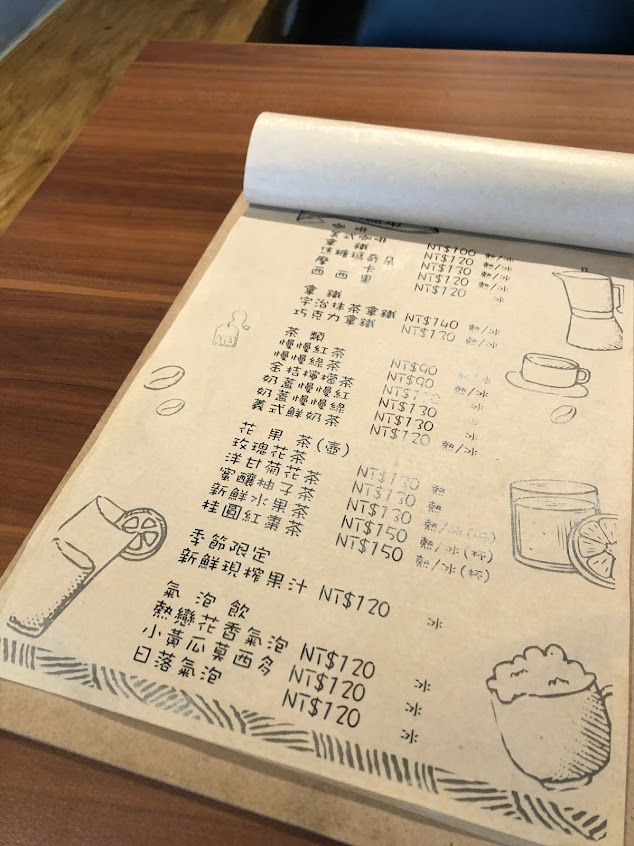 咖啡
美式咖啡 NT$100 熱/冰
拿鐵 NT$120 熱/冰
焦糖瑪奇朵 NT$130 熱/冰
摩卡 NT$120 熱/冰
西西里 NT$120 冰
拿鐵
宇治抹茶拿鐵 NT$140 熱/冰
巧克力拿鐵 NT$130 熱/冰
茶類
慢慢紅茶 NT$90
慢慢綠茶 NT$90 熱/冰
金桔檸檬茶
奶蓋慢慢紅 NT$130 冰
奶蓋慢慢綠 NT$130 冰
義式鮮奶茶 NT$120 熱/冰
花果茶(壺)
玫瑰花茶 NT$130 熱
洋甘菊花茶 NT$130 熱
蜜釀柚子茶 NT$130 熱/冰(杯)
新鮮水果茶 NT$150 熱/冰(杯)
桂圓紅棗茶 NT$150 熱/冰(杯)
季節限定
新鮮現榨果汁 NT$120 冰
氣泡飲
熱戀花香氣泡 NT$120 冰
小黃瓜莫西多 NT$120 冰
日落氣泡 NT$120 冰